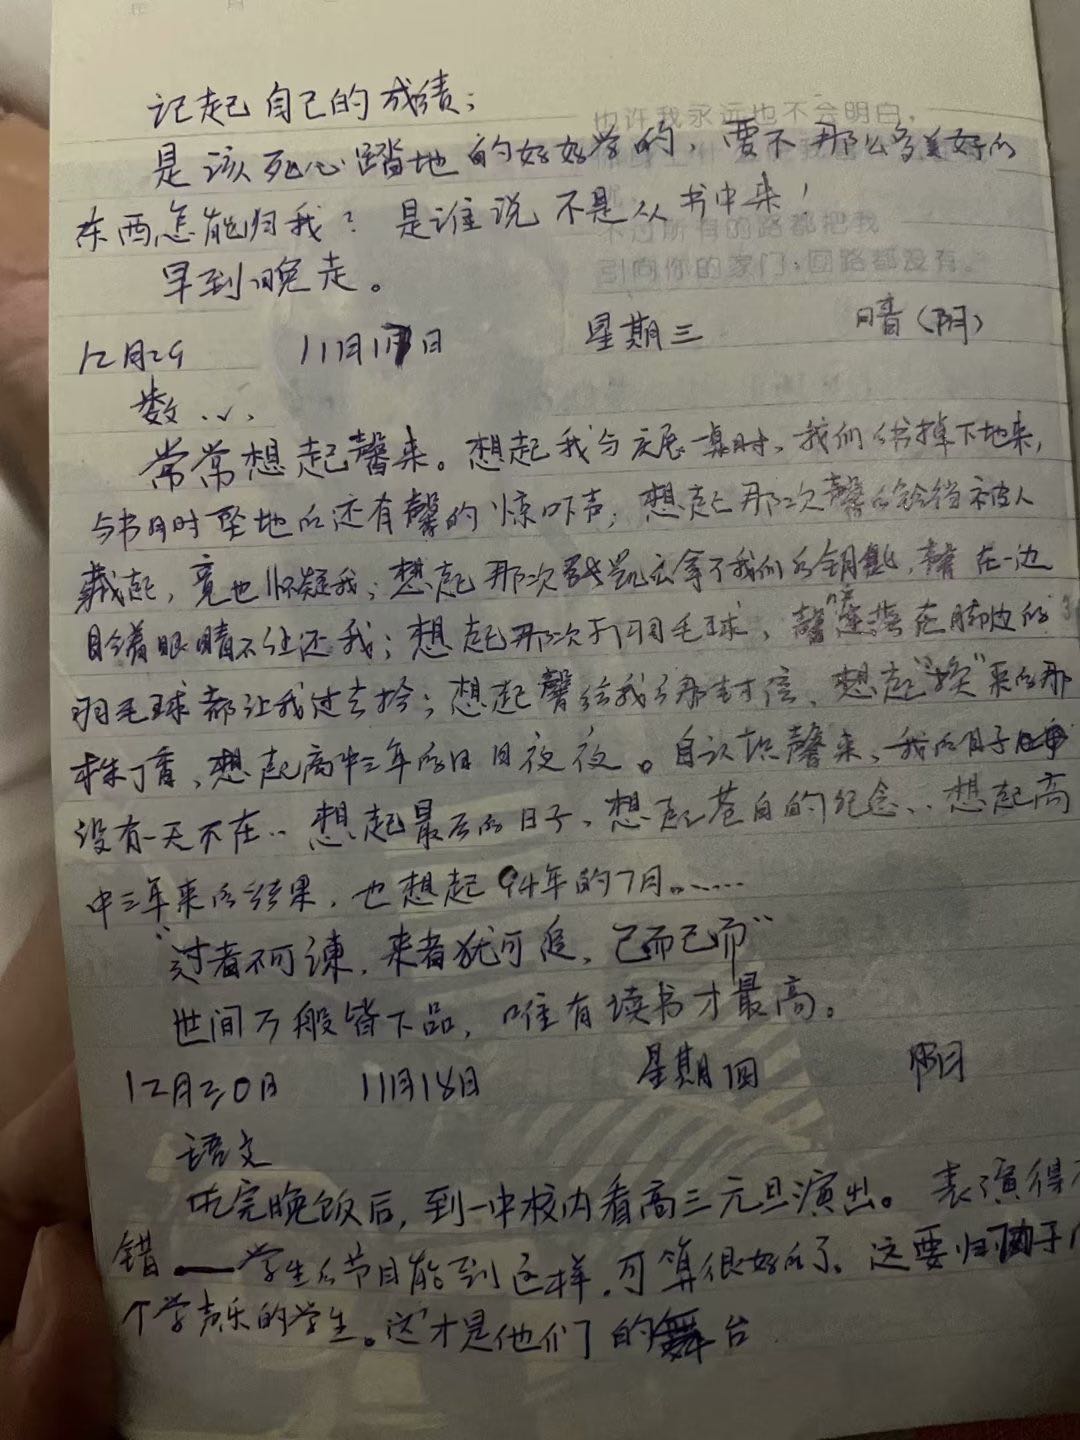 年 月
记起自己的成绩；
也许我永远也不会明白，
是该死心踏地的好好学的，要不那么多美好的
东西怎能归我？是谁说不是从书中来！
不过所有的路都把我
引向你的家门，回路都没有。
早到晚走。
12月29 11月17日 星期三 晴（阴）
数．√．
常常想起馨来。想起我与庆展一桌时，我们书掉下地来，
与书同时坠地的还有馨的惊吓声；想起那次馨的铃铛被人
藏起，竟也怀疑我；想起那次 凯云拿了我们的钥匙，馨在一边
眼睛不让还我；想起那次打羽毛球，馨 连落在脚边的
羽毛球都让我过去拾；想起馨给我的那封信、想起“换”来的那
株丁香、想起高中三年的日日夜夜。自认识馨来、我的日子
没有一天不在．．想起最后的日子、想起苍白的纪念、．想起高
中三年来的结果，也想起94年的7月。……
“过者不可谏，来者犹可追，已而已而”
世间万般皆下品，唯有读书才最高。
12月30日 11月18日 星期四 阴
语文
吃完晚饭后，到一中校内看高三元旦演出。表演得不
错——学生的节目能到这样，可算很好的了、这要归 于
个学声乐的学生。这才是他们的舞台．